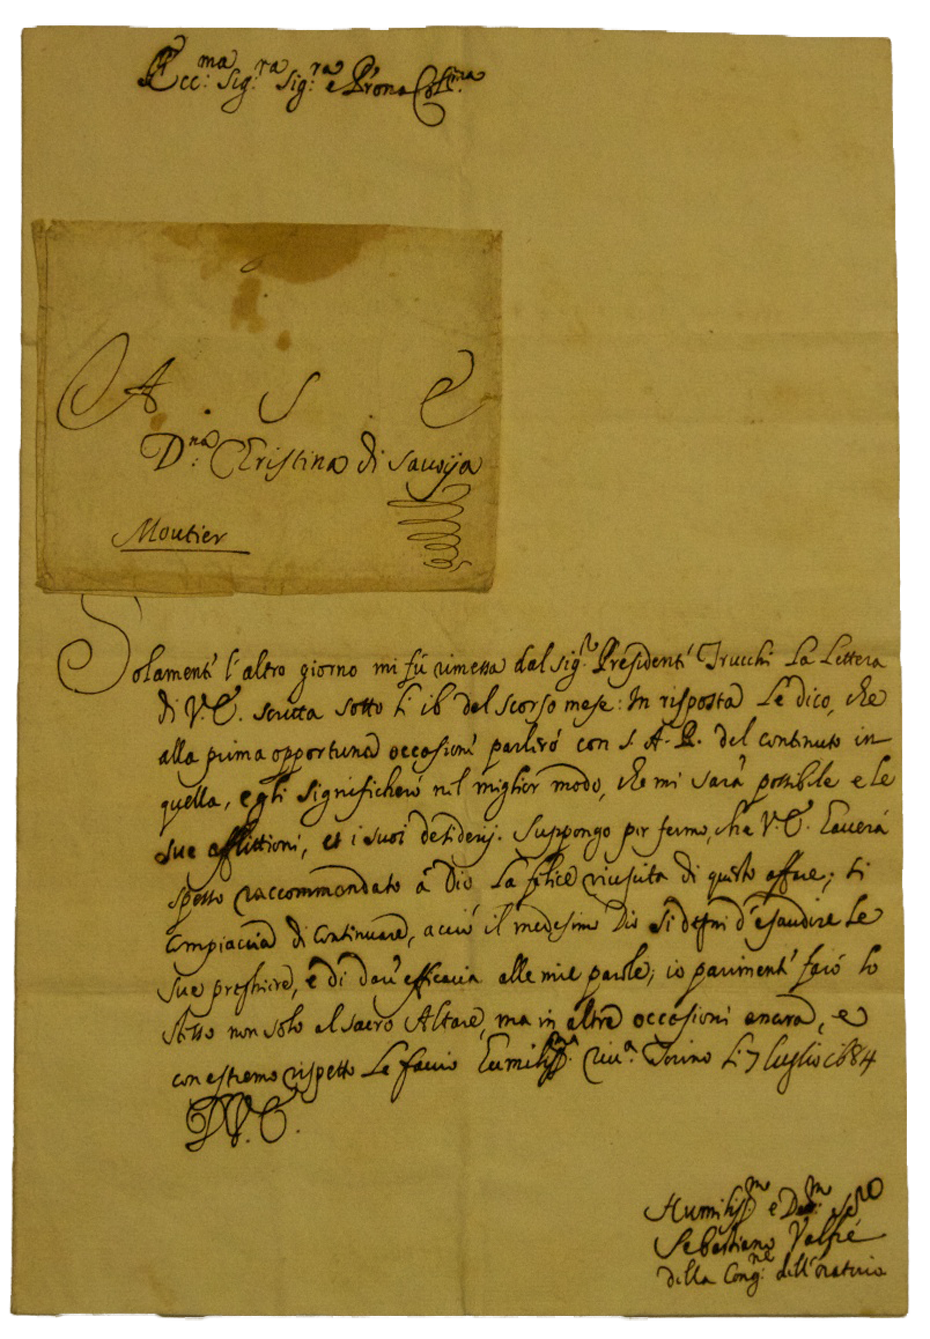 Ecc.ma Sig.ra Sig.ra e P'rona Col.ma
A . S . E
D.na Cristina di Savoija
Moutier
Solament' l'altro giorno mi fù rimessa dal sig.r President' Trucchi La Lettera
di V.E. scritta sotto li 16 del scorso mese: In risposta Le dico, che
alla prima opportuna occasion' parlerò con S. A. R. del continuto in
quella, e gli significherò nel miglior modo, che mi sarà possibile e le
sue afflittioni, et i suoi desiderij. Suppongo per fermo, che V.E. haverà
spesso raccommandato à Dio La felice riuscita di questo affare; si
compiaccia di continuare, acciò il medesimo Dio si degni d'esaudire Le
sue preghiere, e di dar' efficacia alle mie parole; io pariment' farò lo
stesso non solo al sacro Altare, ma in altre occasioni ancora, e
con estremo rispetto Le faccio humiliss.a riv.a Torino li 7 luglio 1684
D.V.E.
Humiliss.mo e Dev.mo Se.ro
Sebastiano Valfré
della Cong.ne dell'oratorio